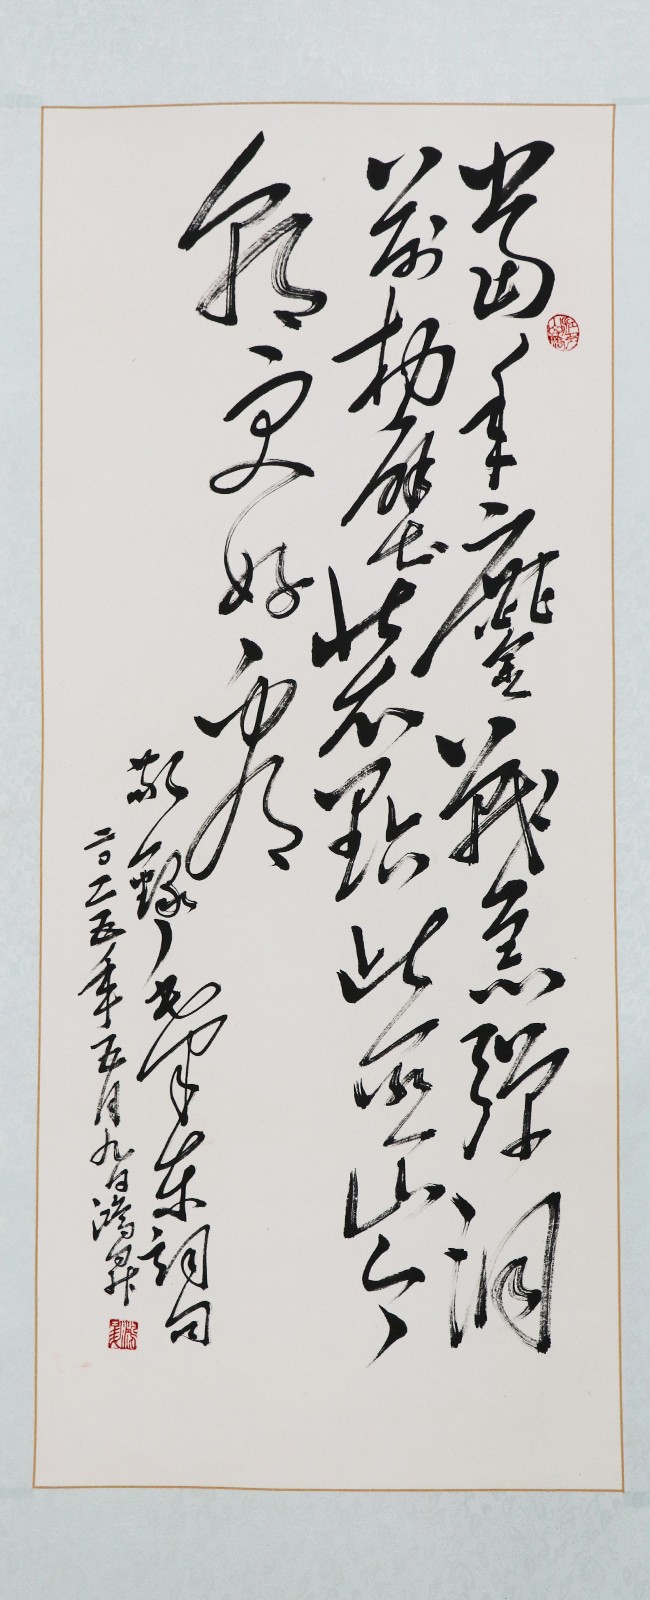 當年鏖戰急彈洞
前村壁裝點此關山今
朝更好看
敬錄毛澤東詞句
二〇二五年五月九日鴻昇